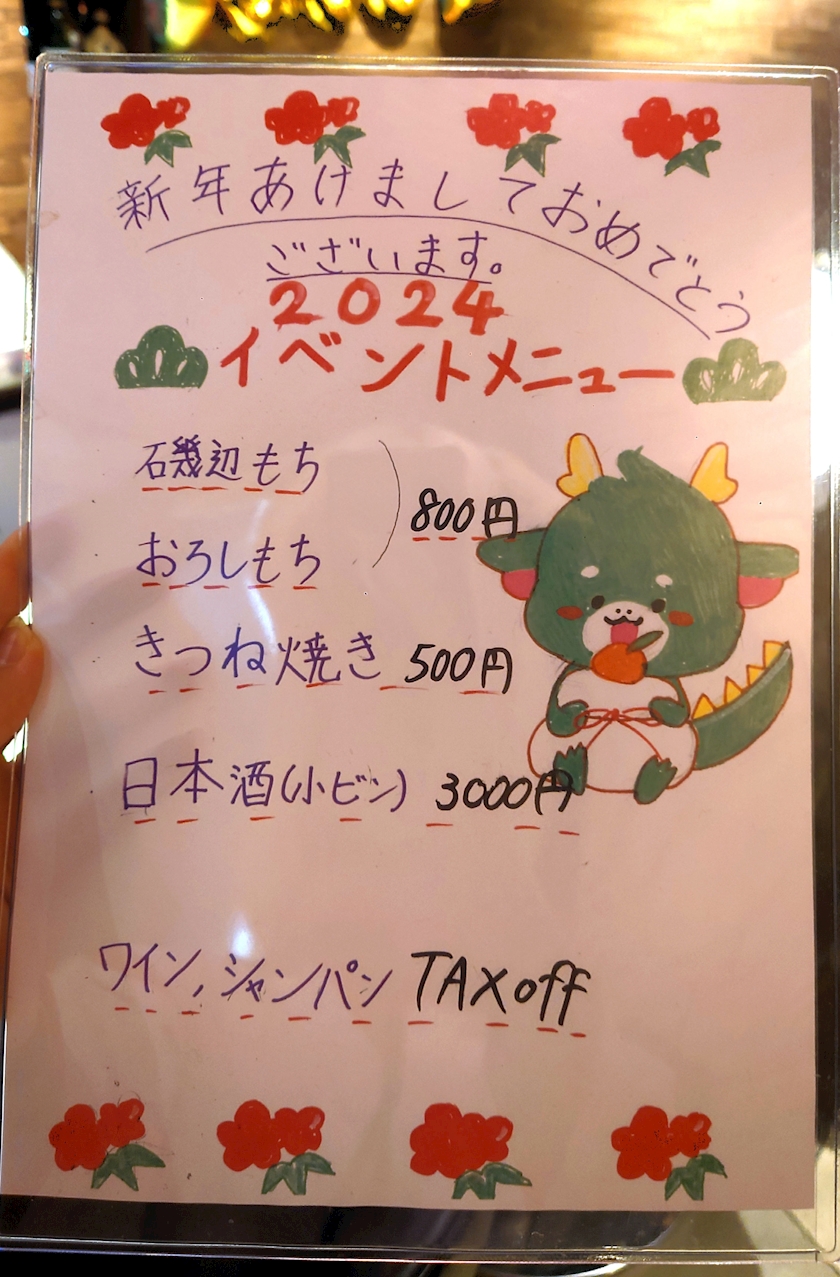 新年あけましておめでとう
ございます。
2024
イベントメニュー
磯辺もち
800円
おろしもち
きつね焼き 500円
日本酒(小ビン) 3000円
ワイン,シャンパン TAX off